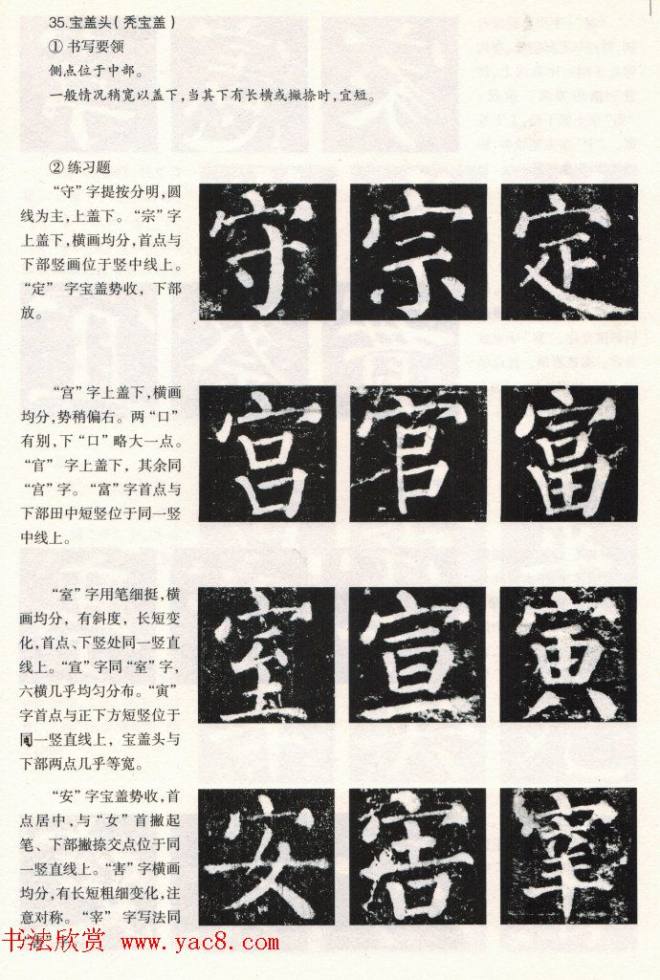 35.宝盖头(秃宝盖)
① 书写要领
侧点位于中部。
一般情况稍宽以盖下,当其下有长横或撇捺时,宜短。
② 练习题
“守”字提按分明,圆
线为主,上盖下。“宗”字
上盖下,横画均分,首点与
下部竖画位于竖中线上。
“定” 字宝盖势收, 下部
放。
守 宗 定
“宫”字上盖下,横画
均分,势稍偏右。两“口”
有别,下“口”略大一点。
“官” 字上盖下, 其余同
“宫”字。“富”字首点与
下部田中短竖位于同一竖
中线上。
宫 官 富
“室”字用笔细挺,横
画均分, 有斜度, 长短变
化,首点、下竖处同一竖直
线上。“宣”字同“室”字,
六横几乎均匀分布。“寅”
字首点与正下方短竖位于
同一竖直线上, 宝盖头与
下部两点几乎等宽。
室 宣 寅
“安”字宝盖势收,首
点居中,与“女”首撇起
笔、下部撇捺交点位于同
一竖直线上。“害”字横画
均分,有长短粗细变化,注
意对称。“宰” 字写法同
安 害 宰
书法欣赏 www.yac8.com